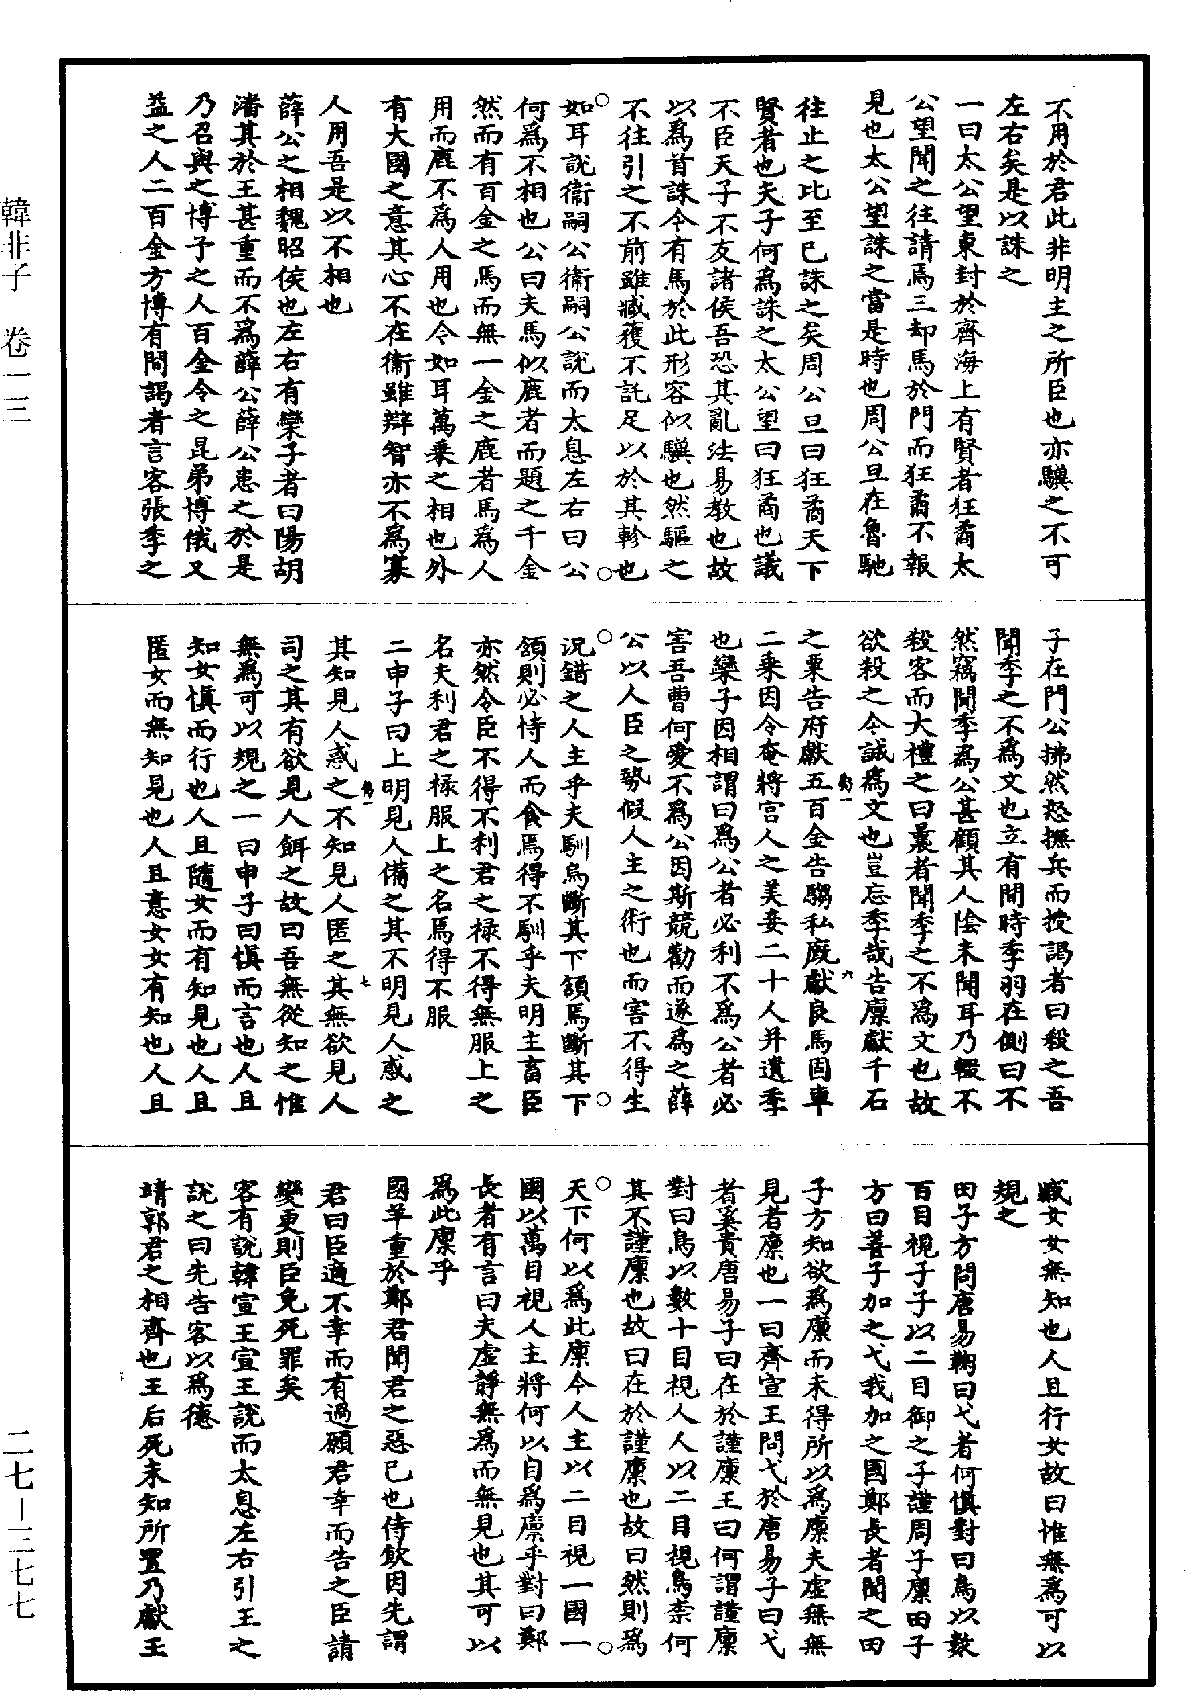 不用於君此非明主之所臣也亦驥之不可
左右矣是以誅之
一曰太公望東封於齊海上有賢者狂矞太
公望聞之往請焉三却馬於門而狂矞不報
見也太公望誅之當是時也周公旦在魯馳
往止之比至已誅之矣周公旦曰狂矞天下
賢者也夫子何爲誅之太公望曰狂矞也議
不臣天子不友諸侯吾恐其亂法易教也故
以爲首誅今有馬於此形容似驥也然驅之
不往引之不前雖臧獲不託足以於其軫也
○如耳說衛嗣公衛嗣公說而太息左右曰公○
何爲不相也公曰夫馬似鹿者而題之千金
然而有百金之馬而無一金之鹿者馬爲人
用而鹿不爲人用也今如耳萬乘之相也外
有大國之意其心不在衛雖辯智亦不爲寡
人用吾是以不相也
薛公之相魏昭侯也左右有欒子者曰陽胡
潘其於王甚重而不爲薛公薛公患之於是
乃召與之博予之人百金令之昆弟博俄又
益之人二百金方博有間謁者言客張季之
子在門公拂然怒撫兵而授謁者曰殺之吾
聞季之不爲文也立有間時季羽在側曰不
然竊聞季爲公甚顧其人陰未聞耳乃輟不
殺客而大禮之曰曩者聞季之不爲文也故
欲殺之今誠爲文也豈忘季哉告廩獻千石
之粟告府獻五百金告騶私廐獻良馬固車
二乘因令奄將宮人之美妾二十人并遺季
也欒子因相謂曰爲公者必利不爲公者必
害吾曹何愛不爲公因斯競勸而遂爲之薛
公以人臣之勢假人主之術也而害不得生
○况錯之人主乎夫馴烏斷其下頷焉斷其下○
頷則必恃人而食焉得不馴乎夫明主畜臣
亦然令臣不得不利君之祿不得無服上之
名夫利君之祿服上之名焉得不服
二申子曰上明見人備之其不明見人惑之
其知見人惑之不知見人匿之其無欲見人
司之其有欲見人餌之故曰吾無從知之惟
無爲可以規之一曰申子曰慎而言也人且
知女慎而行也人且隨女而有知見也人且
匿女而無知見也人且意女女有知也人且
臧女女無知也人且行女故曰惟無爲可以
規之
田子方問唐易鞠曰弋者何慎對曰鳥以數
百目視子子以二目御之子謹周子廩田子
方曰善子加之弋我加之國鄭長者聞之田
子方知欲爲廩而未得所以爲廩夫虛無無
見者廩也一曰齊宣王問弋於唐易子曰弋
者奚貴唐易子曰在於謹廩王曰何謂謹廩
對曰鳥以數十目視人人以二目視鳥柰何
其不謹廩也故曰在於謹廩也故曰然則爲
○天下何以爲此廩今人主以二目視一國一○
國以萬目視人主將何以自爲廩乎對曰鄭
長者有言曰夫虛靜無爲而無見也其可以
爲此廩乎
國羊重於鄭君聞君之惡己也侍飲因先謂
君曰臣適不幸而有過願君幸而告之臣請
變更則臣免死罪矣
客有說韓宣王宣王說而太息左右引王之
說之曰先告客以爲德
靖郭君之相齊也王后死未知所置乃獻玉
韓非子 卷一三
二七—三七七